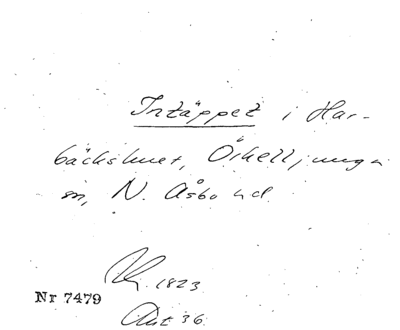 Intäppet i Har-
bäckshult, Örkelljunga
sn, N. Åsbo hd.
1823
Nr 7479
Akt 36